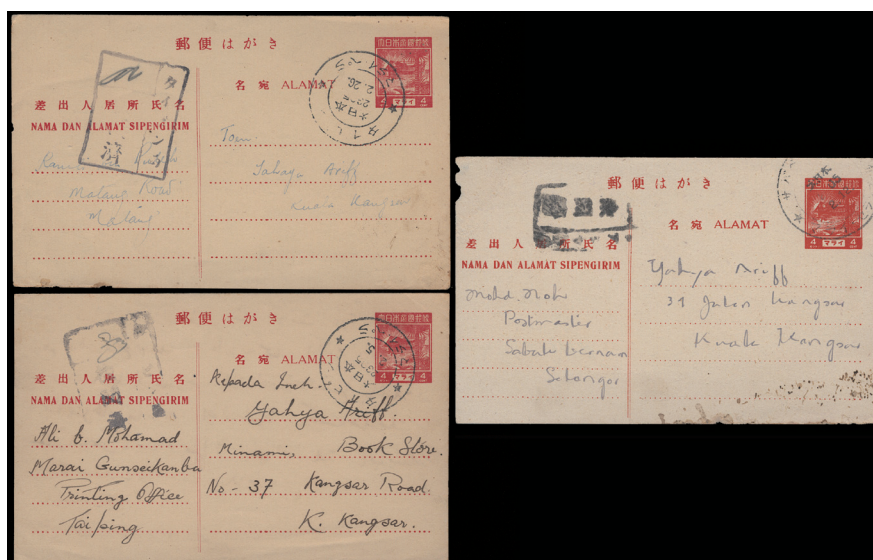 郵便はがき
名宛 ALAMAT
差出人居所氏名
NAMA DAN ALAMAT SIPENGIRIM
マライ
4 4
Matang Road
Matang
Yahya Ariff
Kuala Kangsar
郵便はがき
名宛 ALAMAT
差出人居所氏名
NAMA DAN ALAMAT SIPENGIRIM
4 4
Ali b. Mohamad
Marai Gunseikanbu
Printing Office
Taiping
Kepada Inch.
Yahya Ariff.
Minami, Book Store.
No - 37 Kangsar Road.
K. Kangsar.
郵便はがき
名宛 ALAMAT
差出人居所氏名
NAMA DAN ALAMAT SIPENGIRIM
マライ
4 4
Mohd. Noh
Postmaster
Sabak Bernam
Selangor
Yahya Ariff
37 Jalan Kangsar
Kuala Kangsar